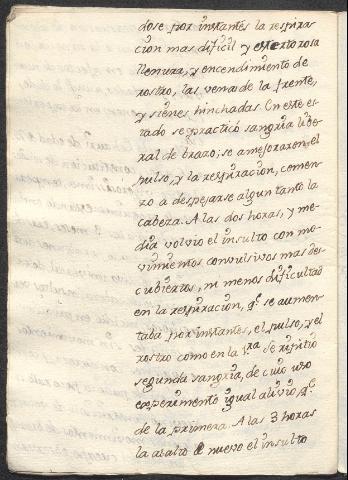 dose por instantes la respira
cion mas dificil y estertorosa
llenura, y encendimiento de
rostro, las venas de la frente,
y sienes hinchadas. En este es
tado se practicó sangria libe
ral de brazo; se mejoraron, el
pulso, y la respiracion, comen
zo a despejarse algun tanto la
cabeza. A las dos horas, y me
dia volvio el insulto con mo
vimientos convulsivos mas des
cubiertos, ni menos dificultad
en la respiracion, q.e se aumen
taba por instantes, el pulso, y el
rostro como en la 1.ra se repitio
segunda sangria, de cuio uso
experimento igual alivio, q.e
de la primera. A las 3 horas
la asalto de nuevo el insulto